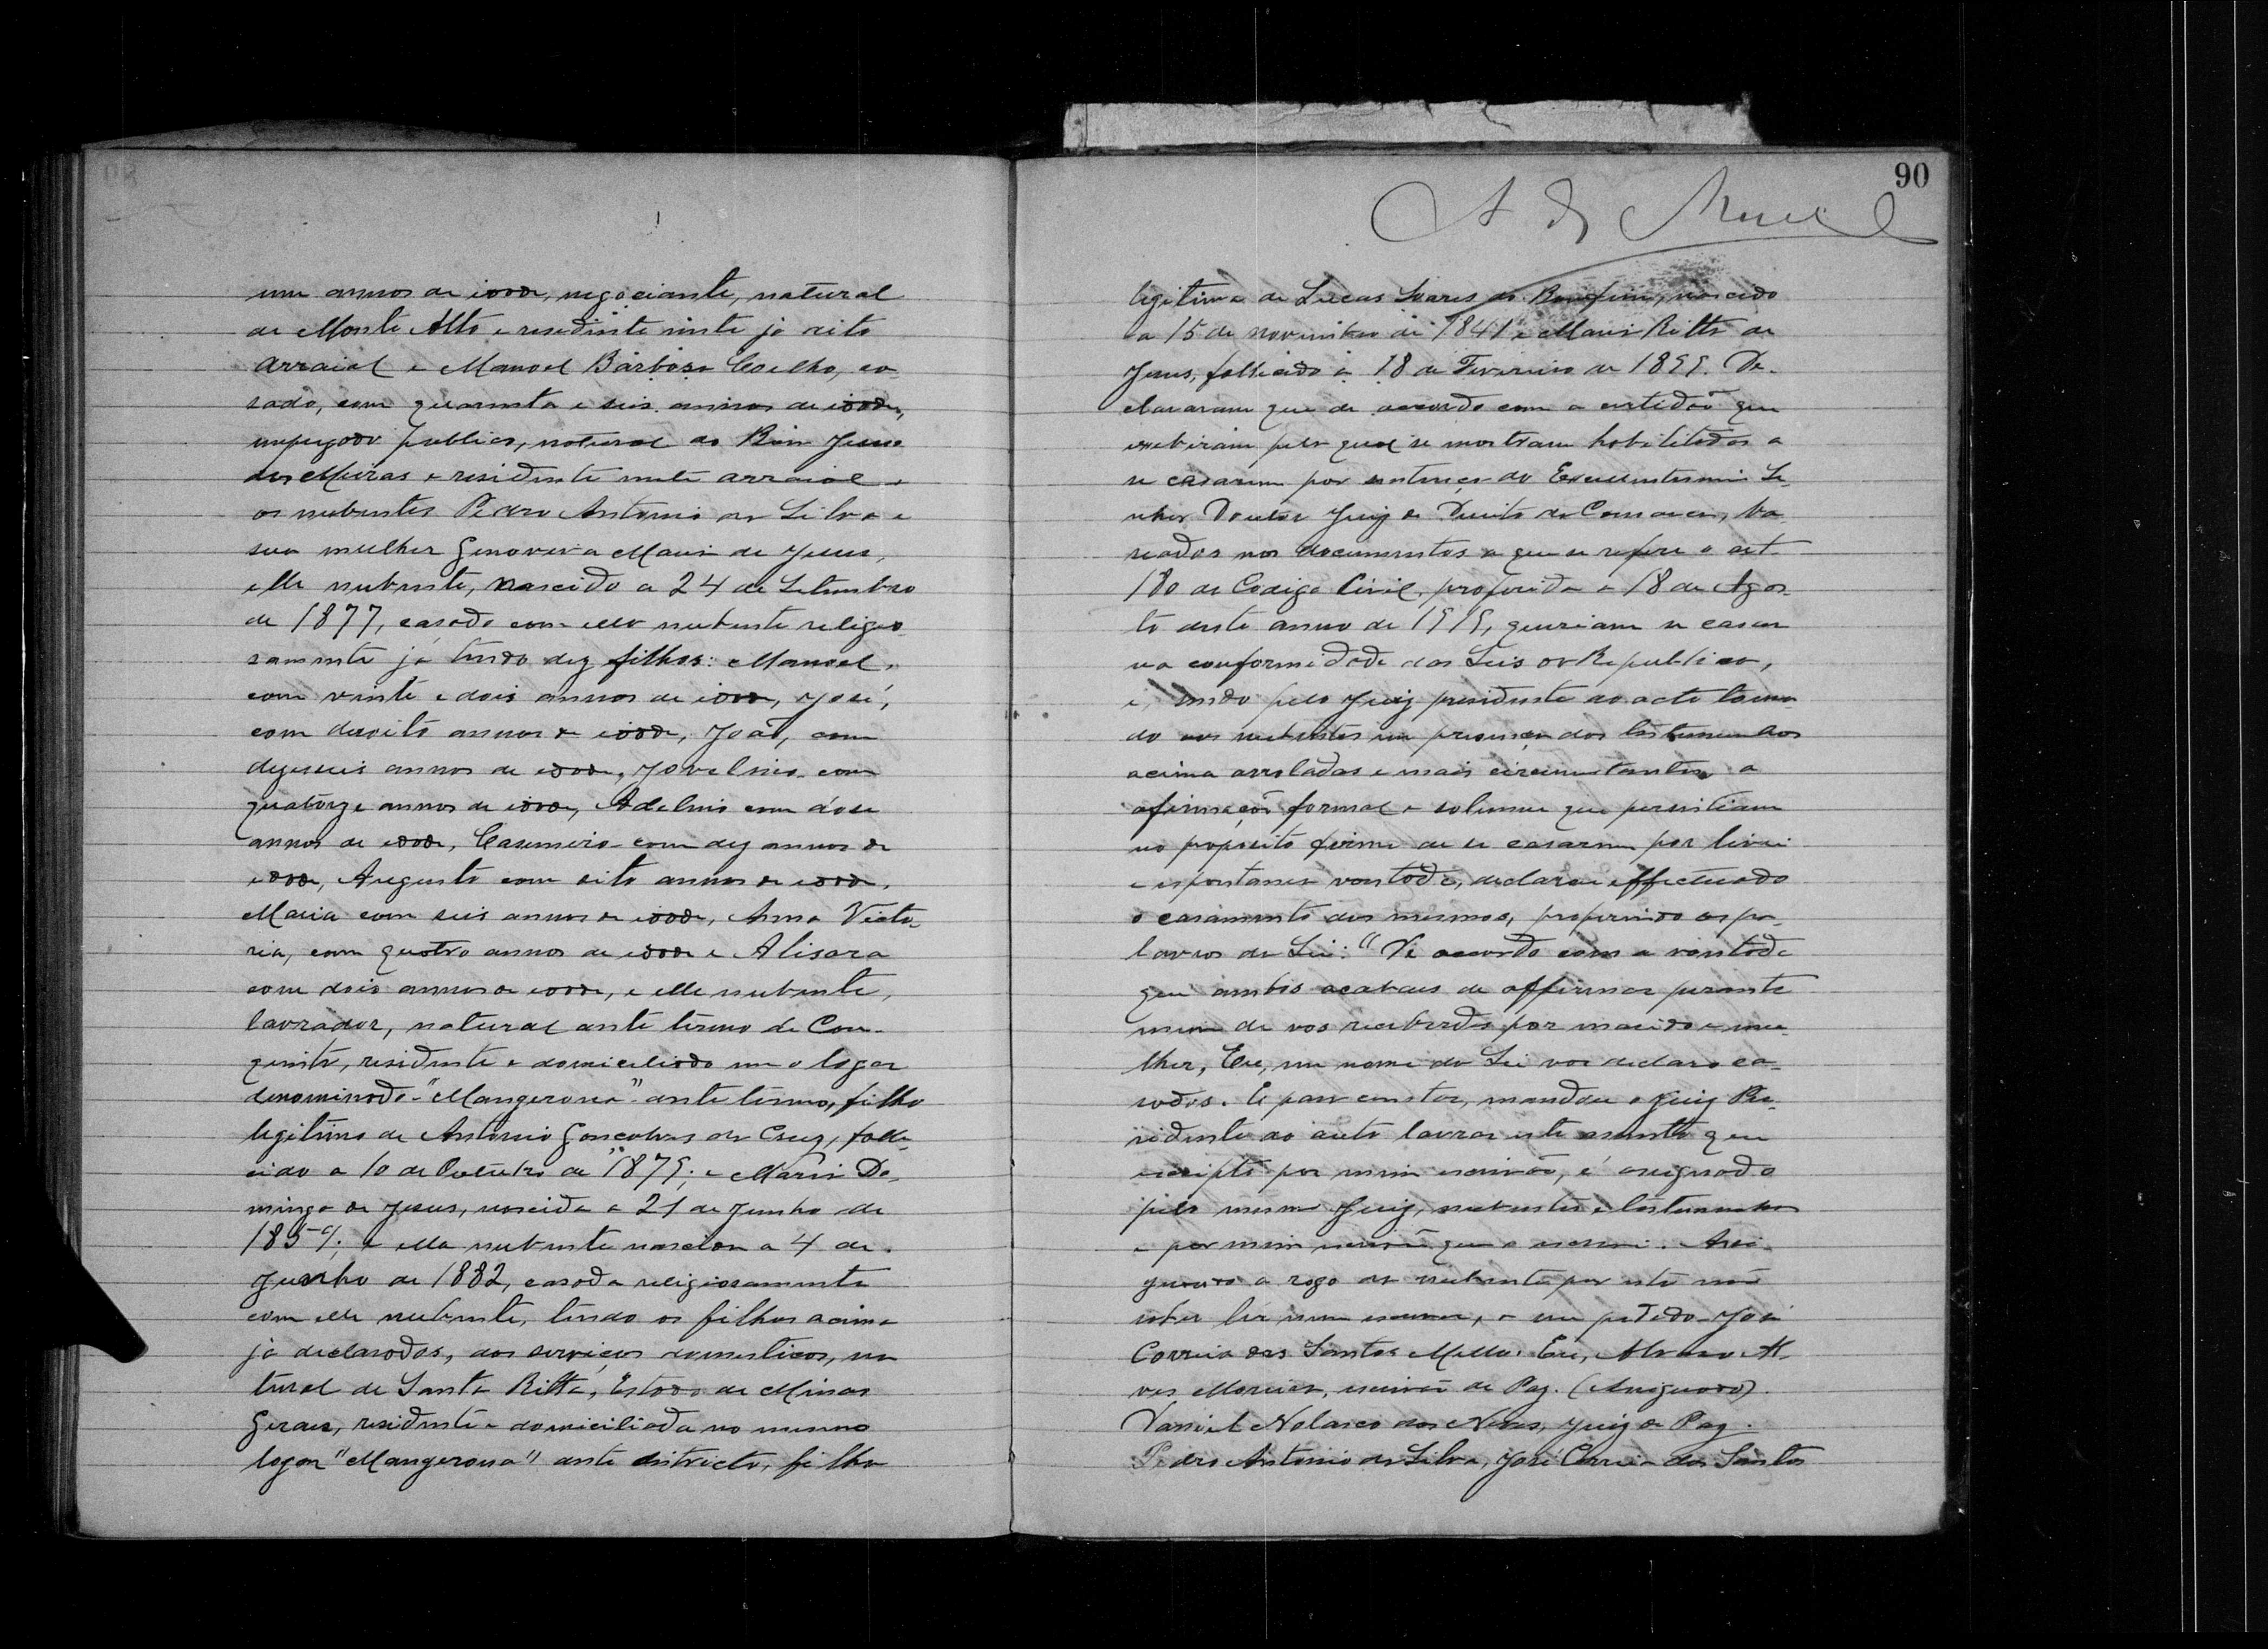 um annos de idade, negociante, natural
de Monte Alto e residente neste já dito
arraial e Manoel Barbosa Coelho, ca-
sado, com quarenta e seis annos de idade,
empregado publico, natural do Bom Jesus
dos Meiras e residente neste arraial e
os nubentes Pedro Antonio da Silva e
sua mulher Genoveva Maria de Jesus,
elle nubente, nascido a 24 de Setembro
de 1877, casado com ella nubente religio-
samente já tendo dez filhos: Manoel,
com vinte e dois annos de idade, José,
com desoito annos de idade, João, com
dezeseis annos de idade, Jovelino com
quatorze annos de idade, Adelino com dose
annos de idade, Casemiro com dez annos de
idade, Augusto com oito annos de idade,
Maria com seis annos de idade, Anna Victo-
ria, com quatro annos de idade e Alisara
com dois annos de idade, e elle nubente,
lavrador, natural deste termo de Con-
quista, residente e domiciliado em o logar
denominado "Mangerona" deste termo, filho
legitimo de Antonio Goncalves da Cruz, falle-
cido a 10 de Outubro de 1879; e Maria Do-
minga de Jesus, nascida a 21 de Junho de
1859; e ella nubente nasceu a 4 de
Junho de 1882, casada religiosamente
com elle nubente, tendo os filhos acima
já declarados, dos serviços domesticos, na
tural de Santa Ritta, Estado de Minas
Geraes, residente e domiciliada no mesmo
logar "Mangerona" deste districto, filha
90
legitima de Lucas Soares do Bomfim, nascido
a 15 de novembro de 1841 e Maria Ritta de
Jesus, fallecida á 18 de Fevereiro de 1899. De-
clararam que de accordo com a certidão que
exebiram pela qual se mostram habilitados a
se casarem por sentença do Excellentissimo Se-
nhor Doutor Juiz de Direito da Comarca, ba-
seados nos documentos a que se refere o art
180 do Codigo Civil, proferida a 18 de Agos-
to deste anno de 1919, queriam se casar
na conformidade das Leis da Republica,
e, sendo pelo Juiz presidente do acto toma-
do aos nubentes em presença das testemunhas
acima arroladas e mais circumstantes a
afirmação formal e solemne que persistiam
no proposito firme de se casarem por livre
e espontanea vontade, declarou effectuado
o casamento dos mesmos, proferindo as pa-
lavras da Lei: "De accordo com a vontade
que ambos acabaes de affirmar perante
mim de vos receberdes por marido e mu-
lher, Eu, em nome da Lei vos declaro ca-
sados. E para constar, mandou o Juiz Pre-
sidente do acto lavrar este assento que
escripto por mim escrivão, é assignado
pelo mesmo Juiz, nubentes e testemunhas
e por mim escrivão que o escrevi. Assi-
gnando a rogo da nubente por esta não
saber ler nem escrever, e seu pedido José
Correia dos Santos Mello. Eu, Alvaro Al-
ves Moreira, escrivão de Paz. (Assignado)
Daniel Nolasco das Neves, Juiz de Paz.
Pedro Antonio da Silva, José Correia dos Santos